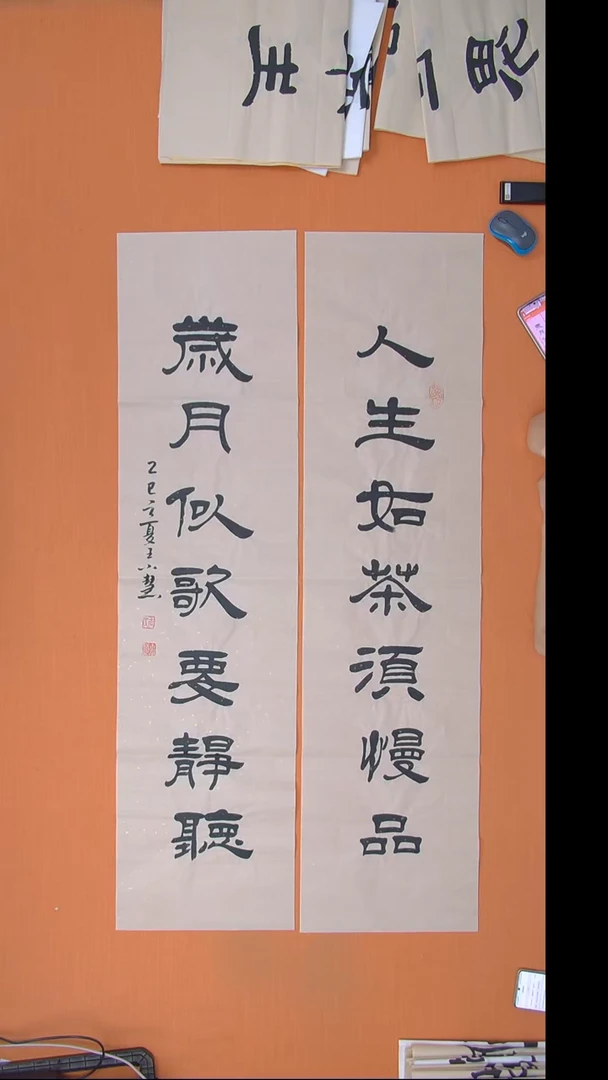 人生如茶須慢品
歲月似歌要靜聽
乙巳之夏王小慧